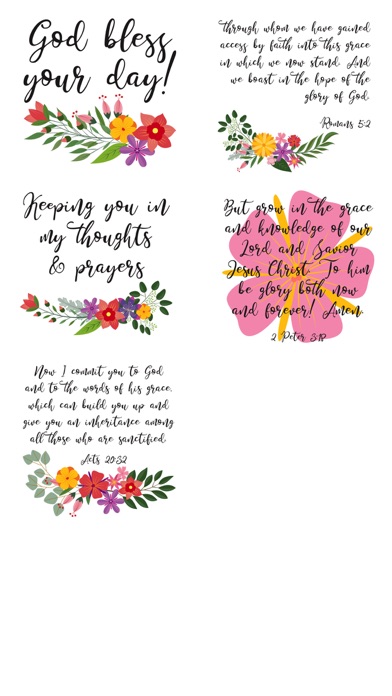 God bless
your day!
Through whom we have gained
access by faith into this grace
in which we now stand. And
we boast in the hope of the
glory of God.
Romans 5:2
Keeping you in
my thoughts
& prayers
But grow in the grace
and knowledge of our
Lord and Savior
Jesus Christ. To him
be glory both now
and forever! Amen.
2 Peter 3:18
Now I commit you to God
and to the words of his grace,
which can build you up and
give you an inheritance among
all those who are sanctified.
Acts 20:32